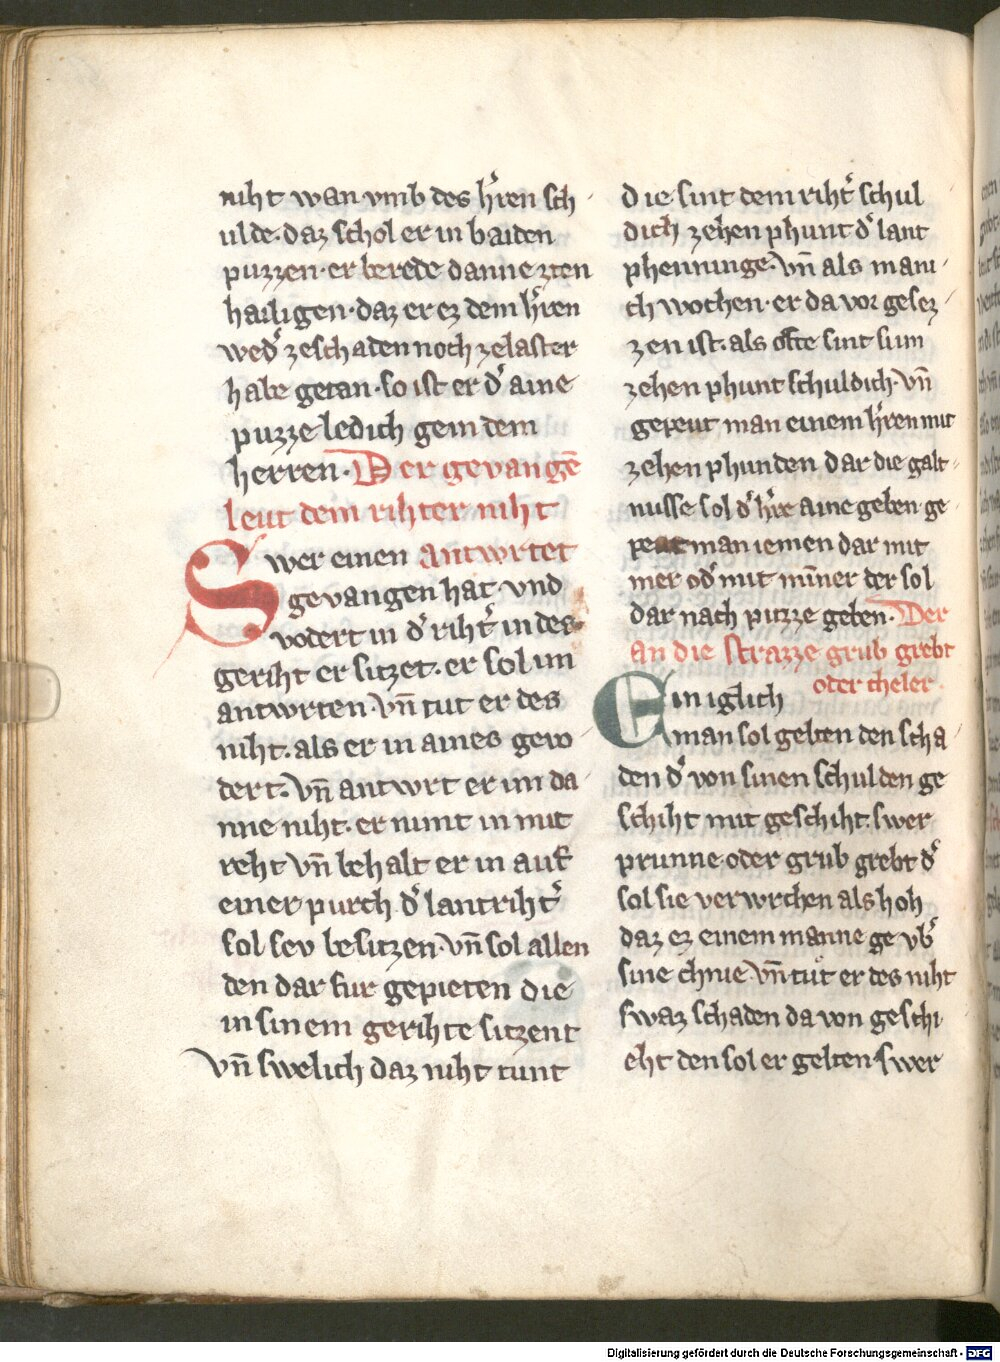 niht wan vmb des h̾ren sch
ulde. daz schol er in baiden
puzzen. er berede danne zten
hailigen. daz er ez dem h̾ren
wed̾ zeschaden noch zelaster
habe getan. so ist er d̾ aine
puzze ledich gein dem
herren. Der gevangē
leut dem rihter niht
Swer einen antwrtet
gevangen hat. vnd
vodert in d̾ riht̾ in des
geriht er sitzet. er sol im
antwrten. vn̄ tut er des
niht. als er in aines gevo
dert. vn̄ antwrt er im da
nne niht. er nimt in mit
reht vn̄ behalt er in auf
einer purch d̾ lantriht̾
sol sev besitzen. vn̄ sol allen
den dar fur gepieten die
in sinem gerihte sitzent
vn̄ swelich daz niht tunt
die sint dem riht̾ schul
dich zehen phunt d̾ lant
phenninge. vn̄ als mani
ch wochen. er da vor gesez
zen ist. als ofte sint sum
zehen phunt schuldich. vn̄
gepeut man einem h̾ren mit
zehen phunden dar die galt
nusse sol d̾ h̾re aine geben. ge
peut man iemen dar mit
mer od̾ mit miñer der sol
dar nach puzze geben. Der
an die strazze grub grebt
oder cheler.
Ein iglich
man sol gelten den scha
den d̾ von sinen schulden ge
schiht mit geschiht. swer
prunne oder grub grebt d̾
sol sie verwrchen als hoh
daz ez einem manne ge vb̾
sine chnie. vn̄ tut er des niht
swaz schaden da von geschi
eht den sol er gelten swer
Digitalisierung gefördert durch die Deutsche Forschungsgemeinschaft - DFG